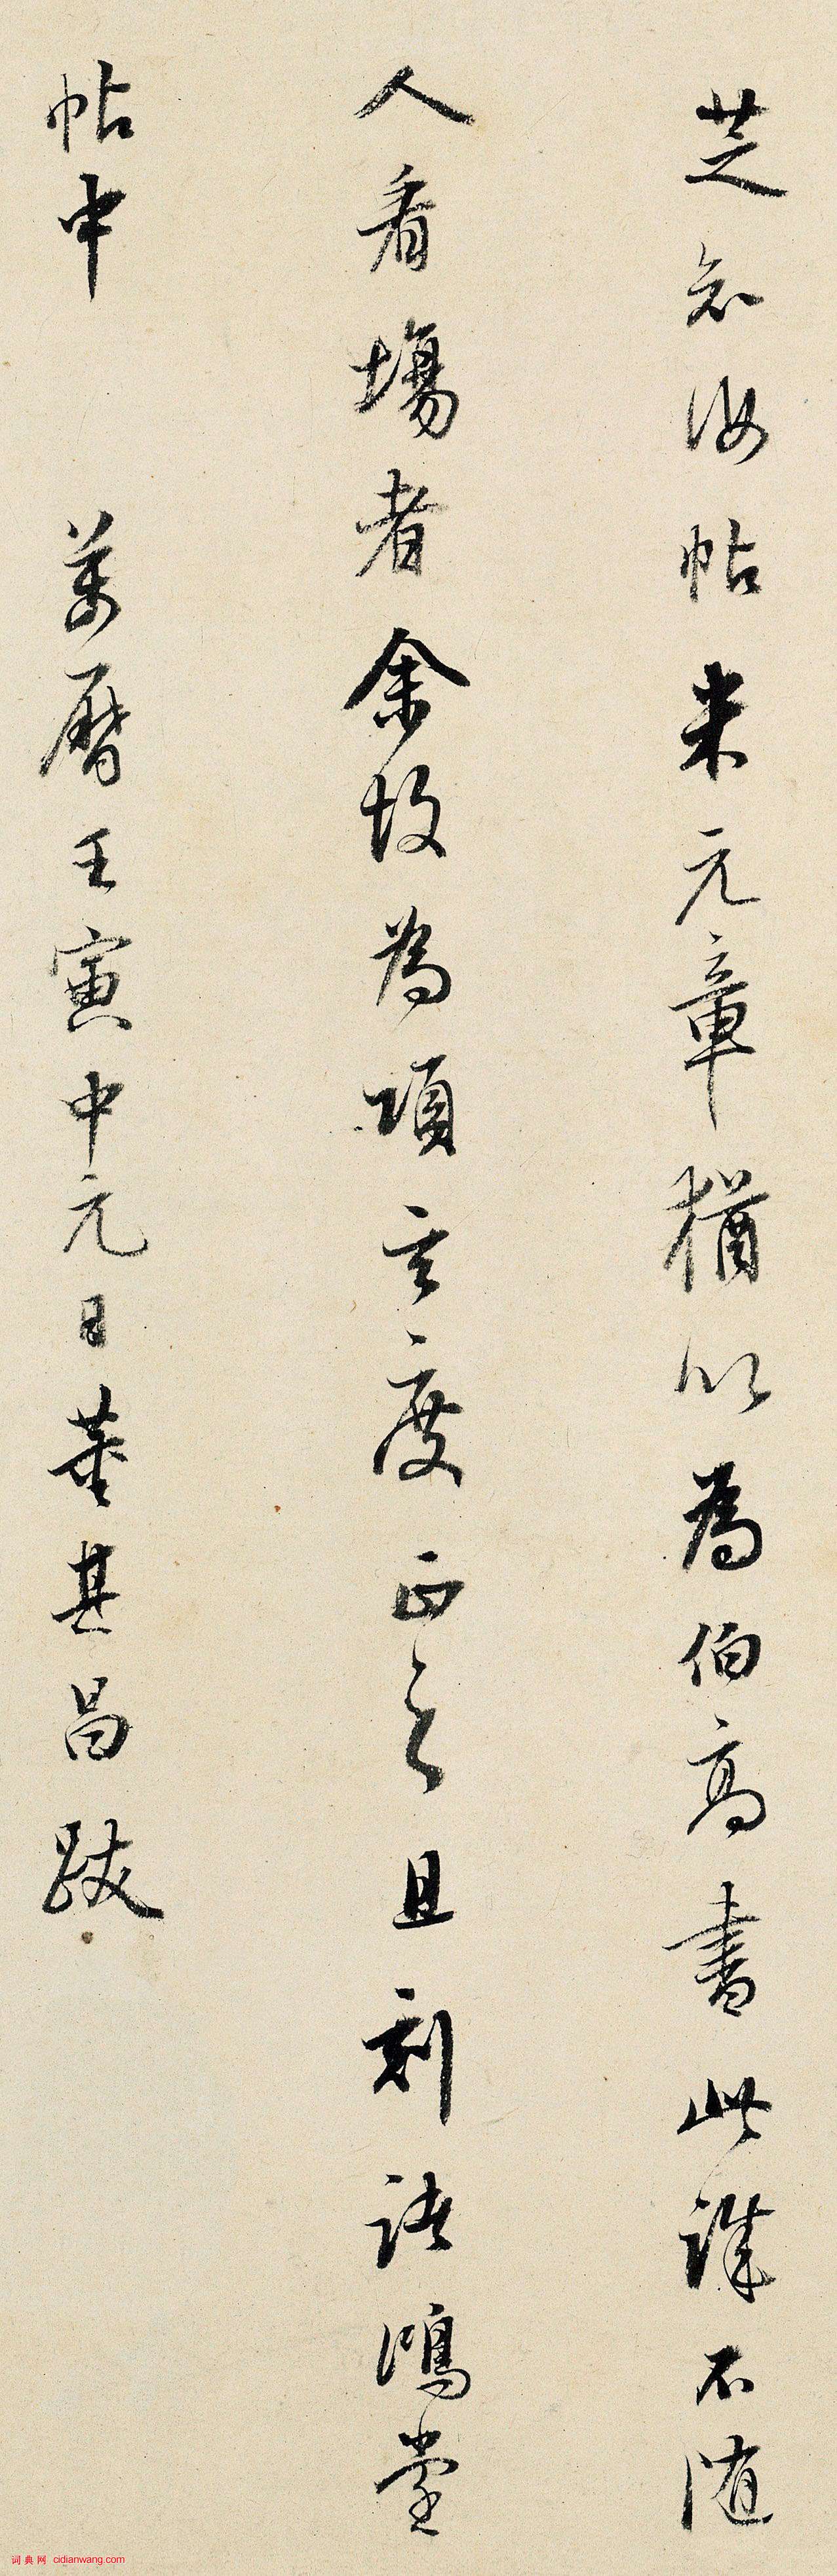 芝知汝帖米元章猶以為伯高書此不隨
人看場者余故為項玄度正之且刻諸鴻堂
帖中 萬曆壬寅中元日董其昌跋
词典网 cidianwang.com